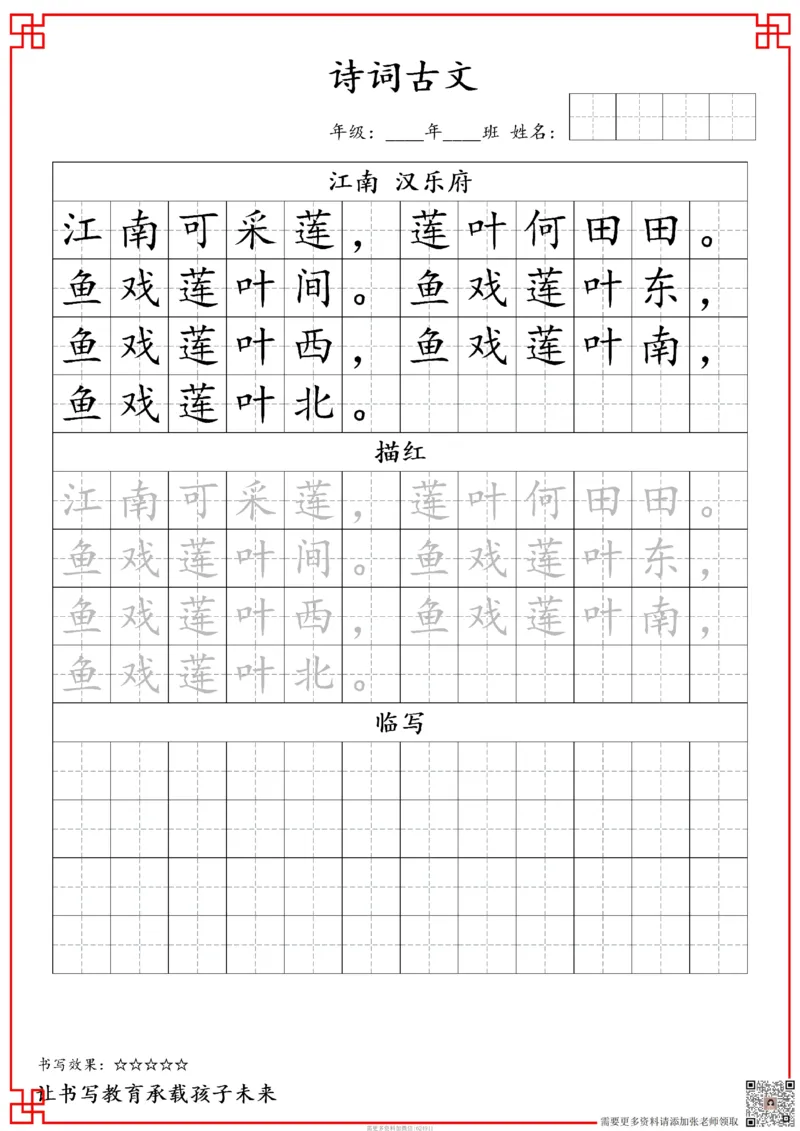 诗词古文
年级：____年____班 姓名：
江南 汉乐府
江南可采莲，莲叶何田田。
鱼戏莲叶间。鱼戏莲叶东，
鱼戏莲叶西，鱼戏莲叶南，
鱼戏莲叶北。
描红
江南可采莲，莲叶何田田。
鱼戏莲叶间。鱼戏莲叶东，
鱼戏莲叶西，鱼戏莲叶南，
鱼戏莲叶北。
临写
书写效果：☆☆☆☆☆
让书写教育承载孩子未来
需要更多资料请添加张老师领取